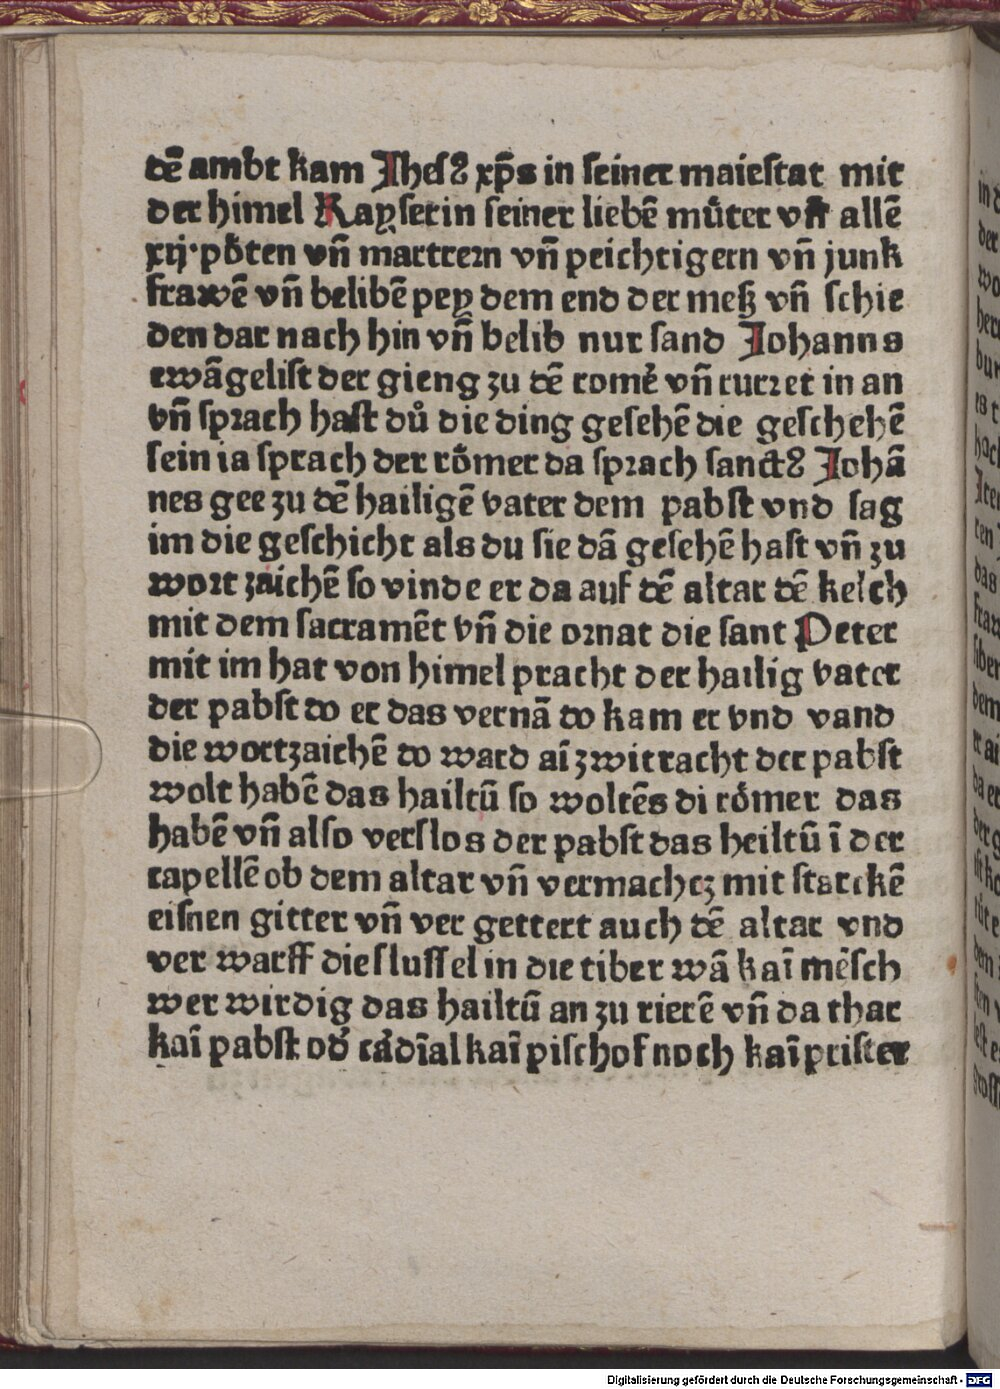 dē ambt kam Jhesꝫ xp̄s in seiner maiestat mit
der himel Kayserin seiner liebē můter vn̄ allē
xij·pöten vn̄ martrern vn̄ peichtigern vn̄ junk
frawē vn̄ belibē pey dem end der meß vn̄ schie
den dar nach hin vn̄ belib nur sand Johanns
ewāgelist der gieng zu dē romē vn̄ rurret in an
vn̄ sprach hast dů die ding gesehē die geschehē
sein ia sprach der römer da sprach sanctꝫ Johā
nes gee zu dē hailigē vater dem pabst vnd sag
im die geschicht als du sie dā gesehē hast vn̄ zu
wort zaichē so vinde er da auf dē altar dē kelch
mit dem sacramēt vn̄ die ornat die sant Peter
mit im hat von himel pracht der hailig vater
der pabst do er das vernā do kam er vnd vand
die wortzaichē do ward aī zwitracht der pabst
wolt habē das hailtū so woltēs di römer das
habē vn̄ also verslos der pabst das heiltū ī der
capellē ob dem altar vn̄ vermachez mit starckē
eisnen gitter vn̄ ver gettert auch dē altar vnd
ver warff die slussel in die tiber wā kaī mēsch
wer wirdig das hailtū an zu rierē vn̄ da thar
kaī pabst od' cādīal kaī pischof noch kaī prister
in d
der
wo
her
bur
es t
hac
Jte
ten
das
fra
siber
dem
er ai
da er
der g
ist ko
tüt e
dem
sten v
lest e
gross
Digitalisierung gefördert durch die Deutsche Forschungsgemeinschaft - DFG